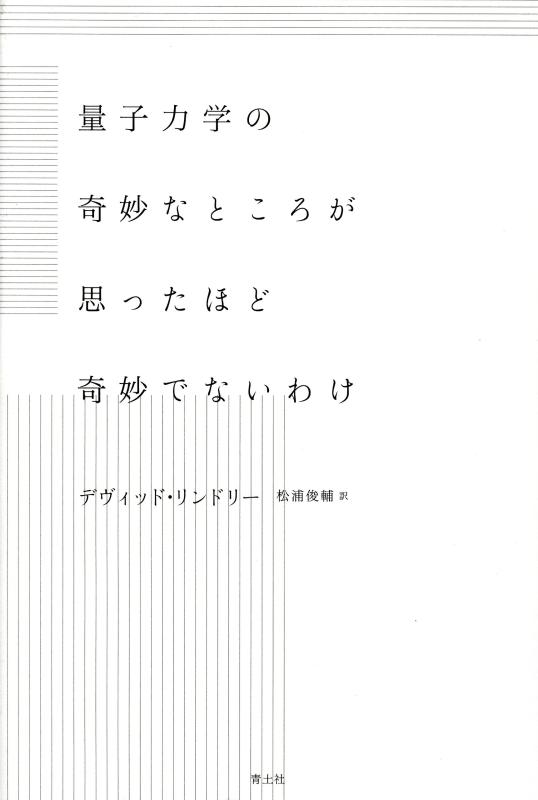 量子力学の
奇妙なところが
思ったほど
奇妙でないわけ
デヴィッド・リンドリー 松浦俊輔 訳
青土社